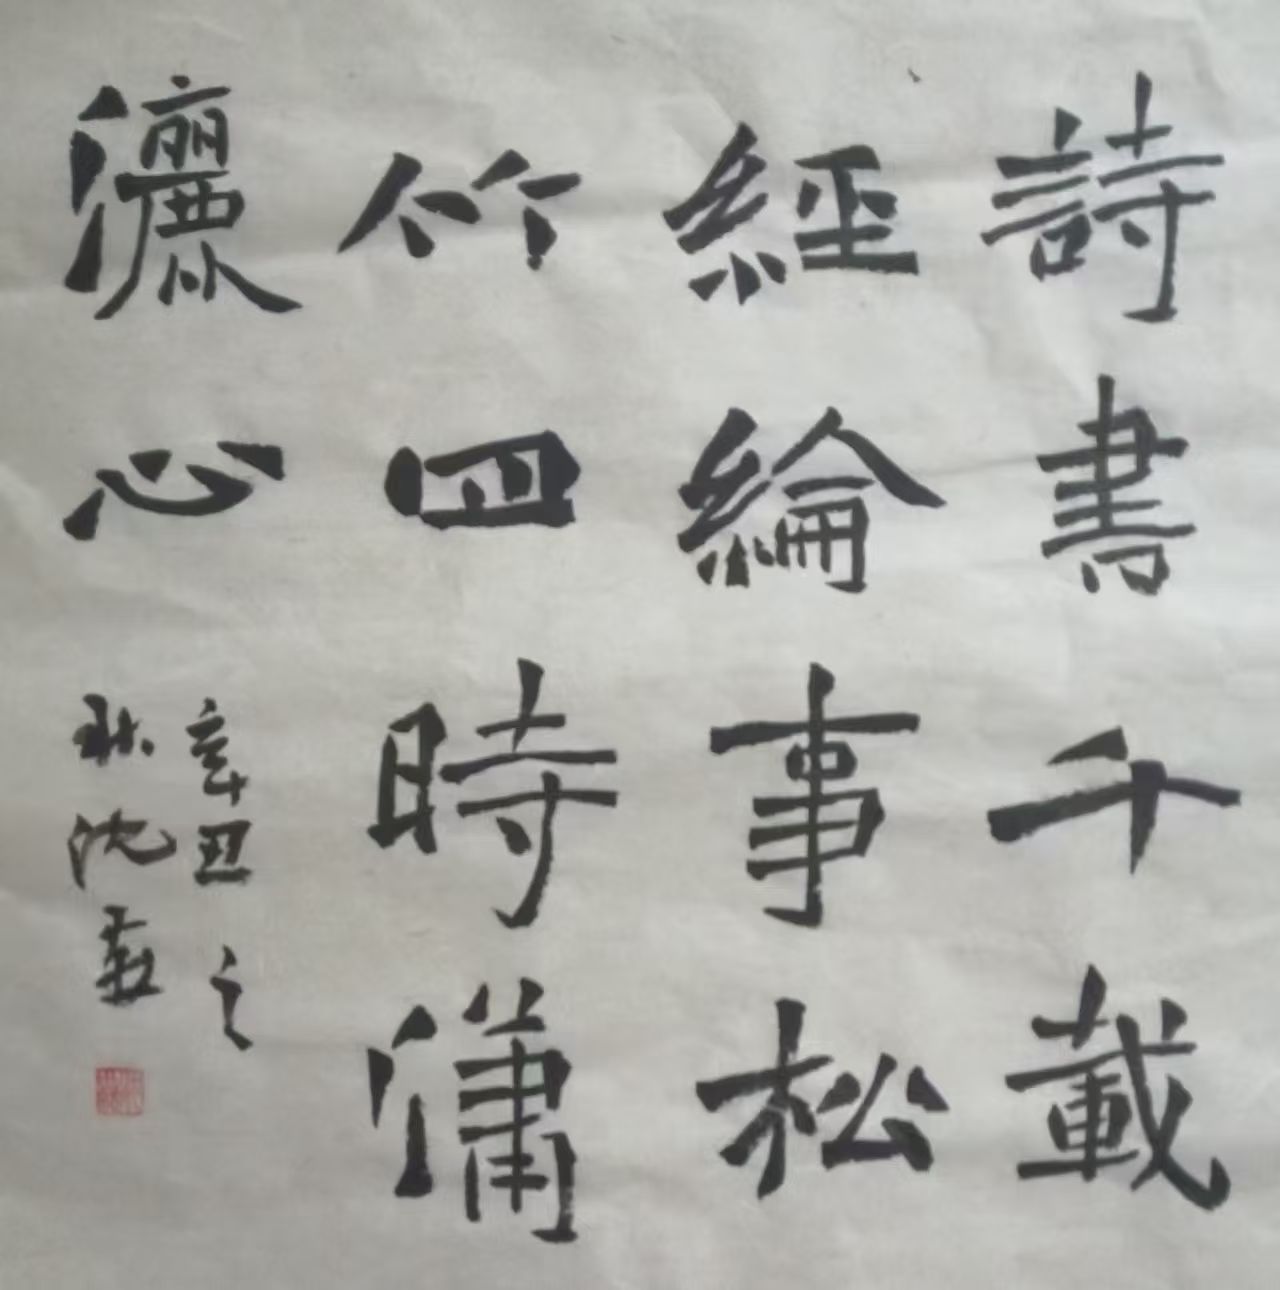 詩書千載
經綸事松
竹四時瀟
灑心
辛丑之
秋沈